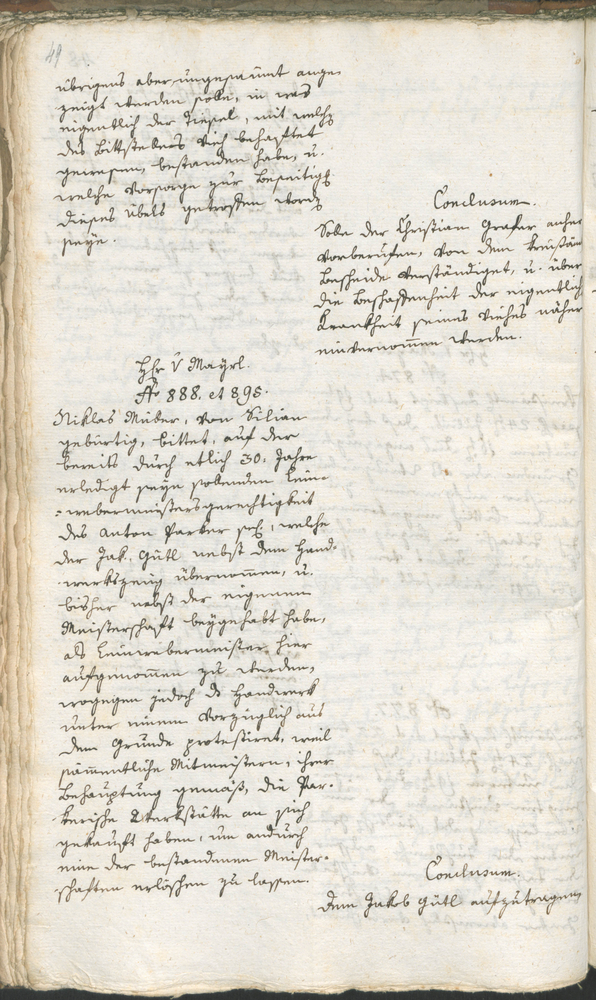 49
übrigens aber ungesäumt ange-
zeigt werden solle, in was
eigentlich der Zustand, mit welch
des Bittstellers Vieh behaftet
gewesen, bestanden habe, u.
welche Vorsorge zur Beseitig
dieses Übels getroffen word
seye.
Conclusum.
Solle der Christian Graser anher
vorberufen, von dem
Bescheide verständiget, u. über
die Beschaffenheit der eigentlich
Krankheit seines Viehes näher
einvernommen werden.
Hr. V. Mayrl.
No 888. et 895.
Niklas Huber, von Silian
gebürtig, bittet, auf der
bereits durch etlich 30. Jahre
erledigt seyn sollenden Lein-
webermeistersgerechtigkeit
des Anton Parker sel., welche
der Jak. Gütl nebst dem Hand-
werkszeug übernommen, u.
bisher nebst der eigenen
Meisterschaft beygehabt habe,
als Leinwebermeister hier
aufgenommen zu werden,
wogegen jedoch das Handwerk
unter einem vorzüglich aus
dem Grunde protestiret, weil
sämmentliche Mitmeistern, ihrer
Behauptung gemäß, die Par-
kerische Werkstätte an sich
gekauft haben, um andurch
eine der bestandenen Meister-
schaften erlöschen zu lassen.
Conclusum.
Dem Jakob Gütl aufzutragen